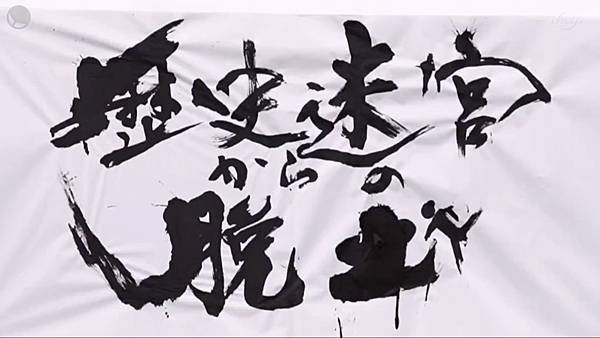 歴史迷宮
からの
脱出